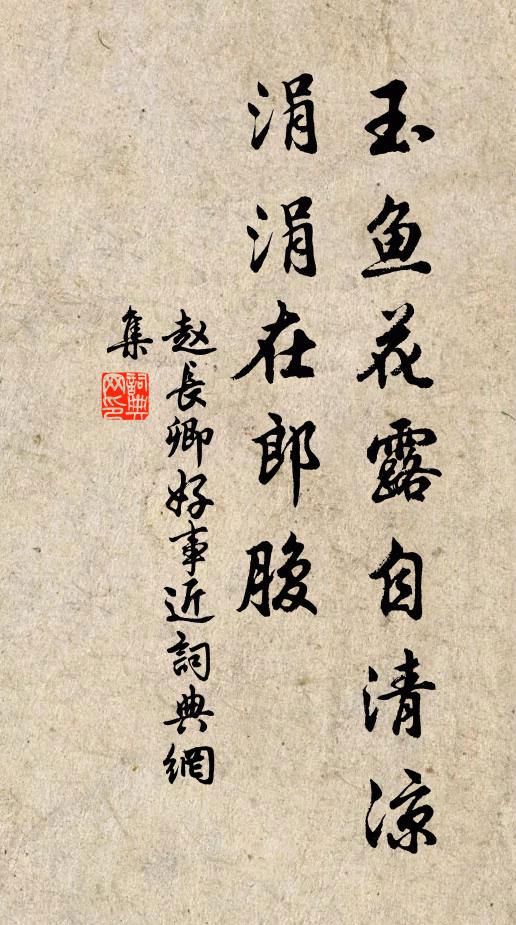 玉鱼花露自清凉
涓涓在郎腹
赵長卿好事近詞典網
集
詞典网印